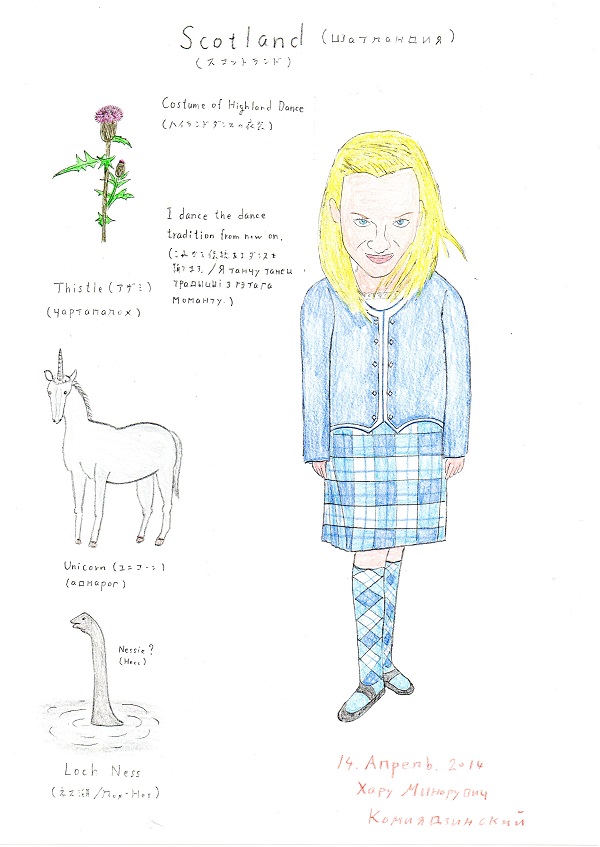 Scotland (Шатландия)
(スコットランド)
Costume of Highland Dance
(ハイランドダンスの衣装)
I dance the dance
tradition from now on.
(これから伝統あるダンスを
踊ります。/Я танчу танец
традыцыі з гэтага
моманту.)
Thistle (アザミ)
(чартапалох)
Unicorn (ユニコーン)
(аднарог)
Nessie?
(Несс)
Loch Ness
(ネス湖/Лох-Нес)
14. Апрель. 2014
Хару Минорувич
Комиядзинский